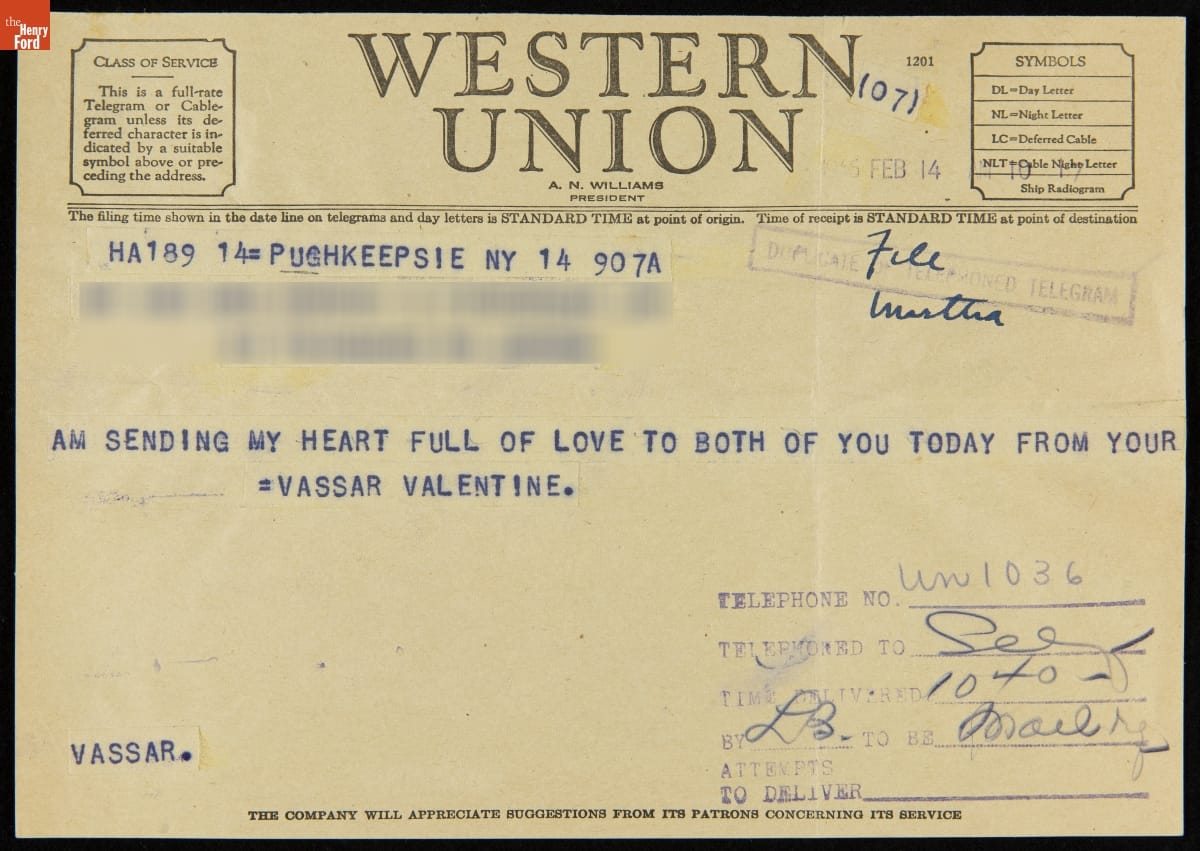 the
Henry
Ford
CLASS OF SERVICE
This is a full-rate
Telegram or Cable-
gram unless its de-
ferred character is in-
dicated by a suitable
symbol above or pre-
ceding the address.
WESTERN
UNION
1201
(07)
A. N. WILLIAMS
PRESIDENT
SYMBOLS
DL=Day Letter
NL=Night Letter
LC=Deferred Cable
NLT=Cable Night Letter
Ship Radiogram
FEB 14
The filing time shown in the date line on telegrams and day letters is STANDARD TIME at point of origin. Time of receipt is STANDARD TIME at point of destination
HA189 14= PUGHKEEPSIE NY 14 907A
DUPLICATE OF TELEPHONED TELEGRAM
File
Martha
AM SENDING MY HEART FULL OF LOVE TO BOTH OF YOU TODAY FROM YOUR
=VASSAR VALENTINE.
TELEPHONE NO. un1036
TELEPHONED TO
TIME DELIVERED 1040
BY LB. TO BE
ATTEMPTS
TO DELIVER
VASSAR.
THE COMPANY WILL APPRECIATE SUGGESTIONS FROM ITS PATRONS CONCERNING ITS SERVICE